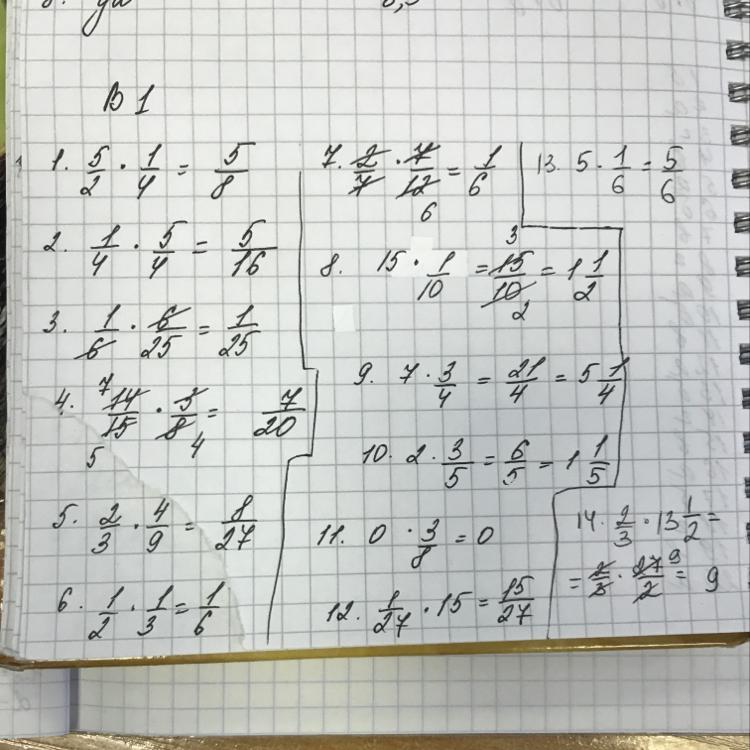 В 1
1. 5/2 · 1/4 = 5/8
2. 1/4 · 5/4 = 5/16
3. 1/6 · 6/25 = 1/25
4. 7 14/15 5 · 3/8 4 = 7/20
5. 2/3 · 4/9 = 8/27
6. 1/2 · 1/3 = 1/6
7. 2/7 · 7/12 6 = 1/6
8. 15 · 1/10 = 3 15/10 2 = 1 1/2
9. 7 · 3/4 = 21/4 = 5 1/4
10. 2 · 3/5 = 6/5 = 1 1/5
11. 0 · 3/8 = 0
12. 1/27 · 15 = 15/27
13. 5 · 1/6 = 5/6
14. 2/3 · 13 1/2 =
= 2/3 · 27 9/2 = 9